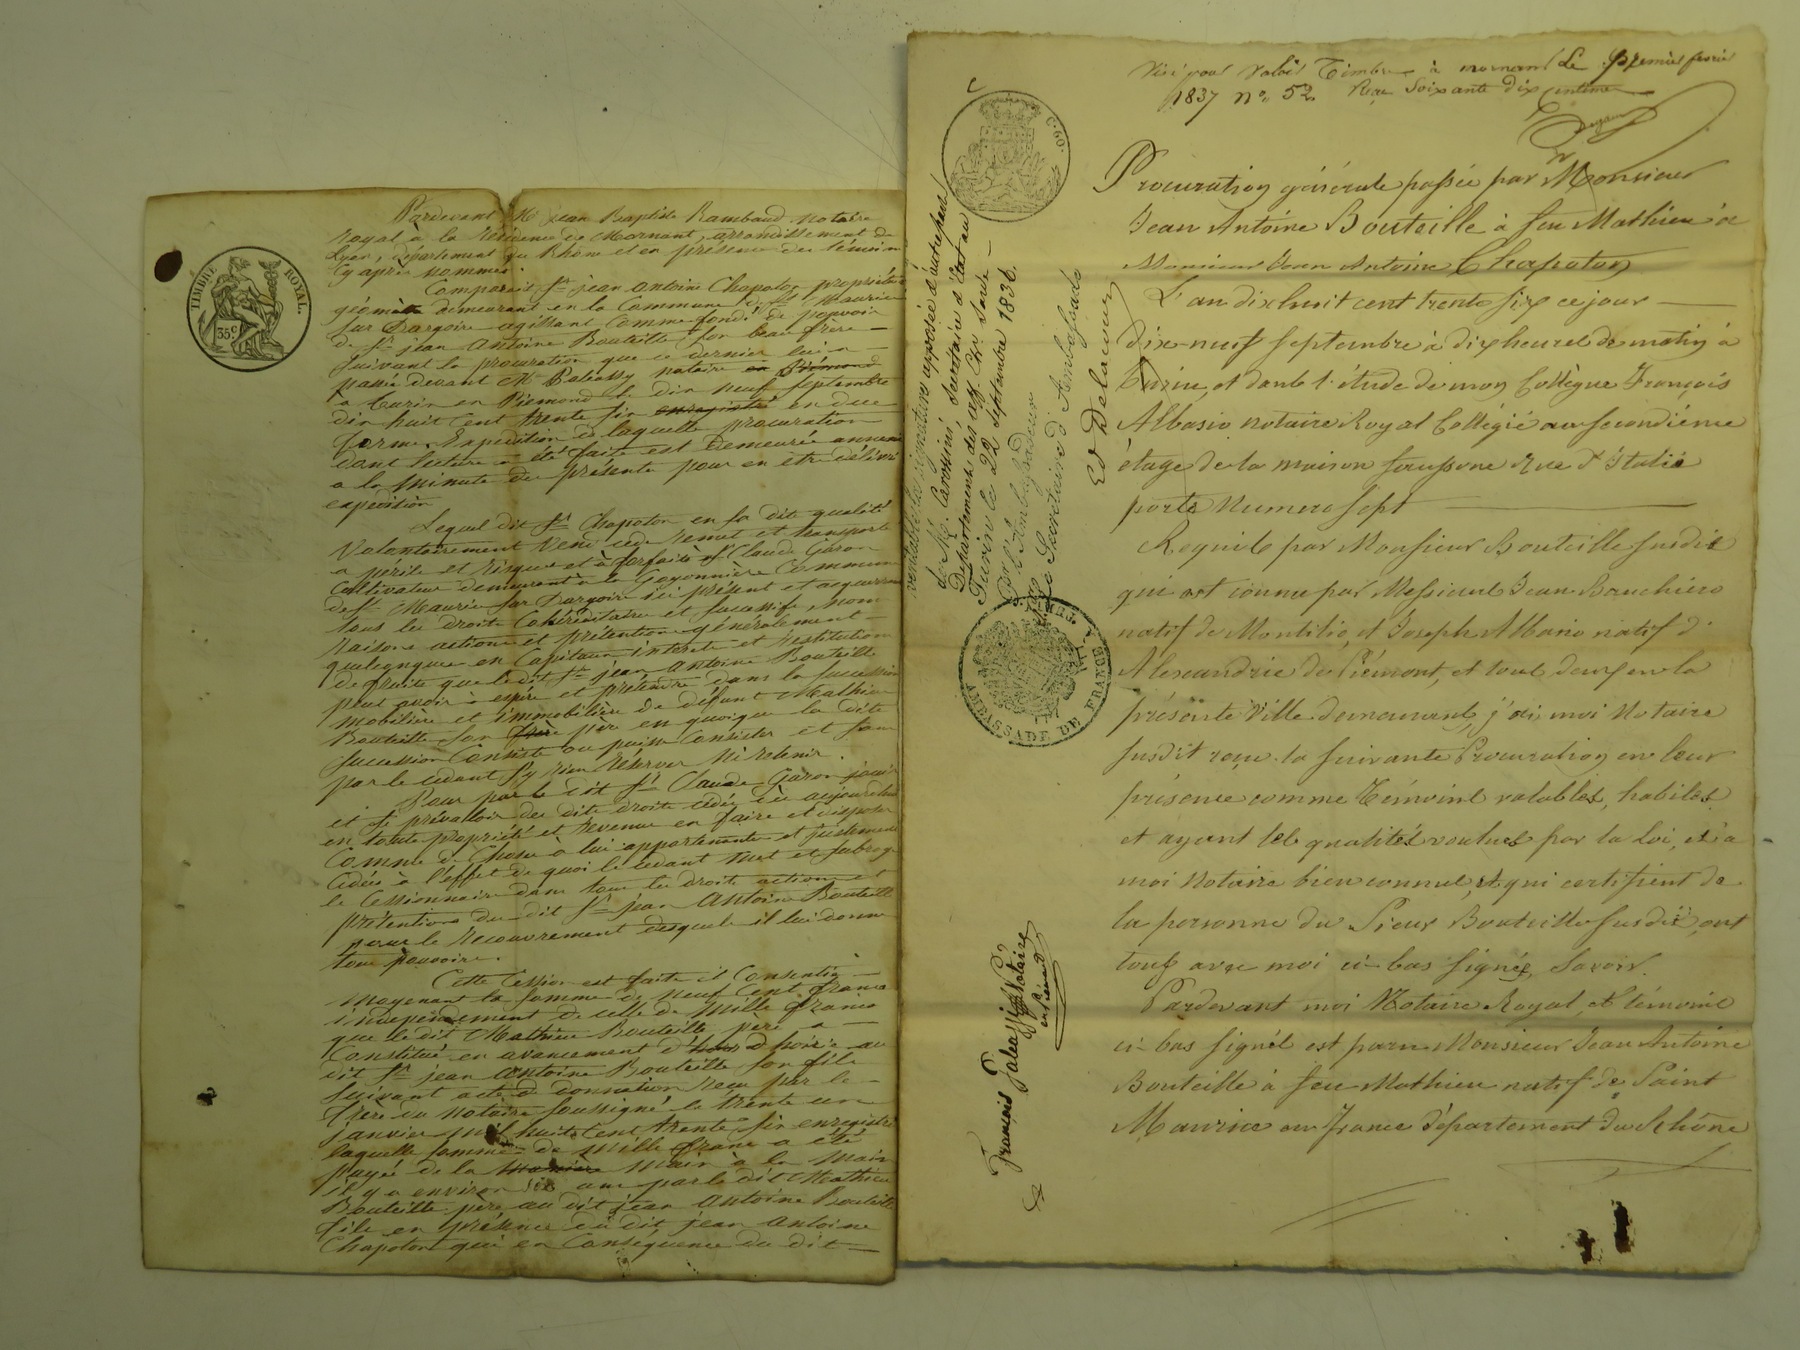 TIMBRE ROYAL.
35c
Pardevant Me jean Baptiste Rambaud Notaire
royal à la résidence de Mornant, arrondissement de
Lyon, département du Rhône et en présence des témoins
cy après nommés.
Comparait Sr jean Antoine Chapoton propriétaire
géomètre demeurant en la Commune de St Maurice
sur Dargoire agissant comme fondé de pouvoir
de Sr jean Antoine Bouteille son beau frère
suivant la procuration que ce dernier lui a
passée devant Me notaire en Piémond
à Turin en Piemond le dix neuf septembre
dix huit cent trente six enregistré en due
forme. Expédition de laquelle procuration
dont lecture a été faite est demeurée annexée
a la minute des présentes pour en être délivré
expédition
Lequel dit Sr Chapoton en sa dite qualité
volontairement vend cede remet et transporte
a périls et risques et à forfait à Sr Claude Garon
cultivateur demeurant à la Goyonnière Commune
de St Maurice sur Dargoire ici présent et acquereur
tous les droits Cohéréditaires et successifs, noms
raisons actions et prétentions généralement
quelconques en Capitaux interets et restitution
de fruits que le dit Sr jean Antoine Bouteille
peut avoir a espérer et prétendre dans la succession
mobilière et immobilière de défunt Mathieu
Bouteille son père en quoique la dite
succession Consiste ou puisse Consister et sans
par le cédant s'y rien réserver ni retenir.
Pour par le dit Sr Claude Garon jouir
et se prévaloir des dits droits cédés dès aujourd'hui
en toute propriété et revenus en faire et disposer
comme de Chose à lui appartenante et justement
Cédés à l'effet de quoi le cédant met et subroge
le Cessionnaire dans tous les droits actions et
prétentions du dit Sr jean Antoine Bouteille
pour le recouvrement desquels il lui donne
tous pouvoirs.
Cette Cession est faite et Consentie
moyenant la somme de neuf Cent francs
indépendement de celle de Mille francs
que le dit Mathieu Bouteille père a
Constitué en avancement d'hoirie au
dit Sr jean Antoine Bouteille son fils
suivant acte de donnation reçu par le
frère du notaire soussigné le trente un
janvier mil huit Cent trente six enregistré
laquelle somme de Mille francs a été
payée de la main à la main
il y a environ six ans par le dit Mathieu
Bouteille père au dit jean Antoine Bouteille
fils en présence du dit jean Antoine
Chapoton qui en Conséquence du dit
C. 60.
Visé pour Valoir Timbre à mornant Le premier fevrier
1837 no. 52 Reçu Soixante dix centimes
Procuration générale passée par Monsieur
Jean Antoine Bouteille à feu Mathieu à
Monsieur Jean Antoine Chapoton
L'an dixhuit cent trente six ce jour
dix-neuf septembre à dix heures de matin à
Turin, et dans l'étude de mon Collègue François
Albasio notaire Royal Collégié au secondième
étage de la maison saussone Rue d'Italie
porte Numero sept
Requis par Monsieur Bouteille susdit
qui est connu par Messieurs Jean Banchiero
natif de Montilio, et Joseph Albario natif d'
Alexandrie de Piémont, et tous deux en la
présente Ville demeurant, j'ai, moi Notaire
susdit reçu la suivante Procuration en leur
présence comme Témoins valables, habiles
et ayant les qualités voulues par la Loi, et à
moi Notaire bien connus, et qui certifient de
la personne du Sieur Bouteille susdit, ont
tous avec moi ci-bas signés, Savoir.
Pardevant moi Notaire Royal, et témoins
ci-bas signés est paru Monsieur Jean Antoine
Bouteille à feu Mathieu natif de Saint
Maurice en France département du Rhône
véritable la signature apposée d'autre part
de Mr. Carossini, Secrétaire d'Etat au
Département des aff. Etr. Sarde
Turin le 22 Septembre 1836.
Pr l'Ambassadeur
Le Secrétaire d'Ambassade
Ed Delacour
AMBASSADE DE FRANCE
François Notaire
en Piémont